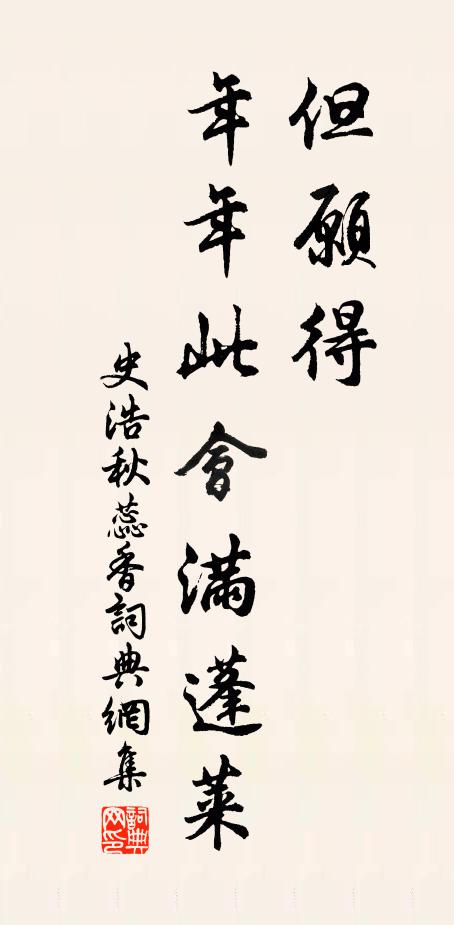 但願得
年年此會滿蓬萊
史浩秋蕊香詞典網集
詞典网印